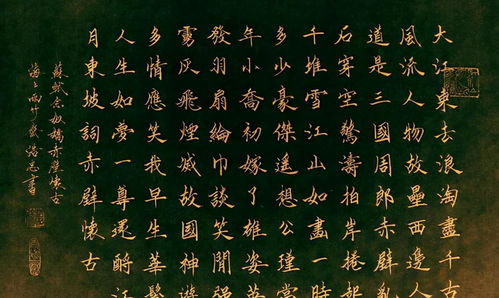 大江東去浪淘盡千古
風流人物故壘西邊人
道是三國周郎赤壁亂
石穿空驚濤拍岸捲起
千堆雪江山如畫一時
多少豪傑遙想公瑾當
年小喬初嫁了雄姿英
發羽扇綸巾談笑間強
虜灰飛煙滅故國神遊
多情應笑我早生華髮
人生如夢一尊還酹江
月東坡詞赤壁懷古
蘇軾念奴嬌赤壁懷古
書